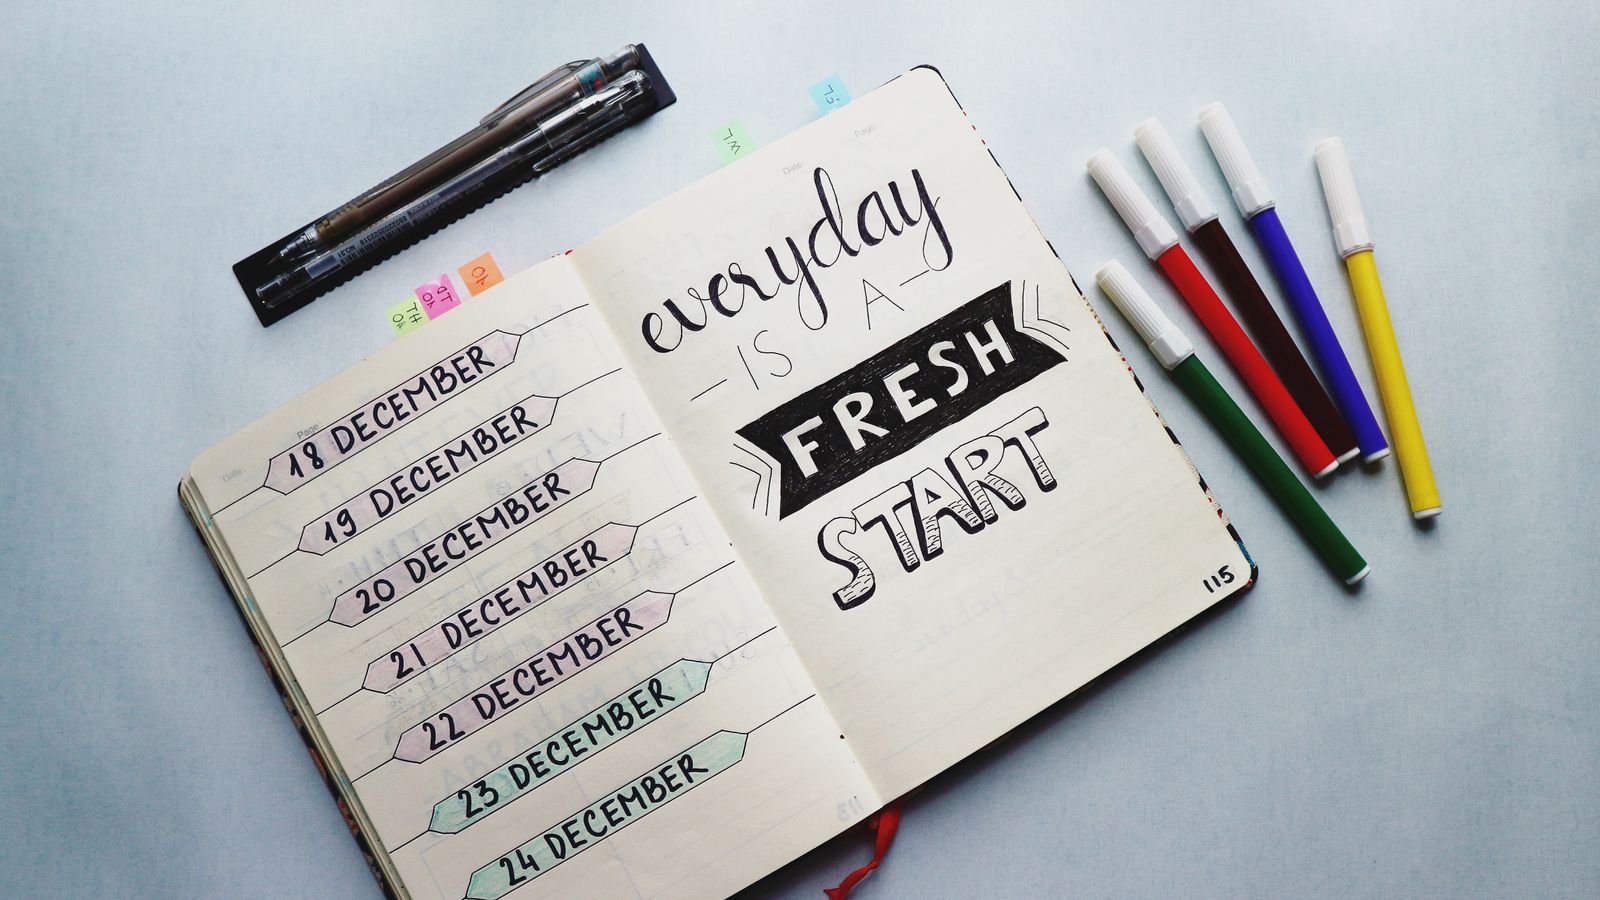 Page:
Date:
18 DECEMBER
19 DECEMBER
20 DECEMBER
21 DECEMBER
22 DECEMBER
23 DECEMBER
24 DECEMBER
Page:
Date:
everyday
IS A
FRESH
START
115